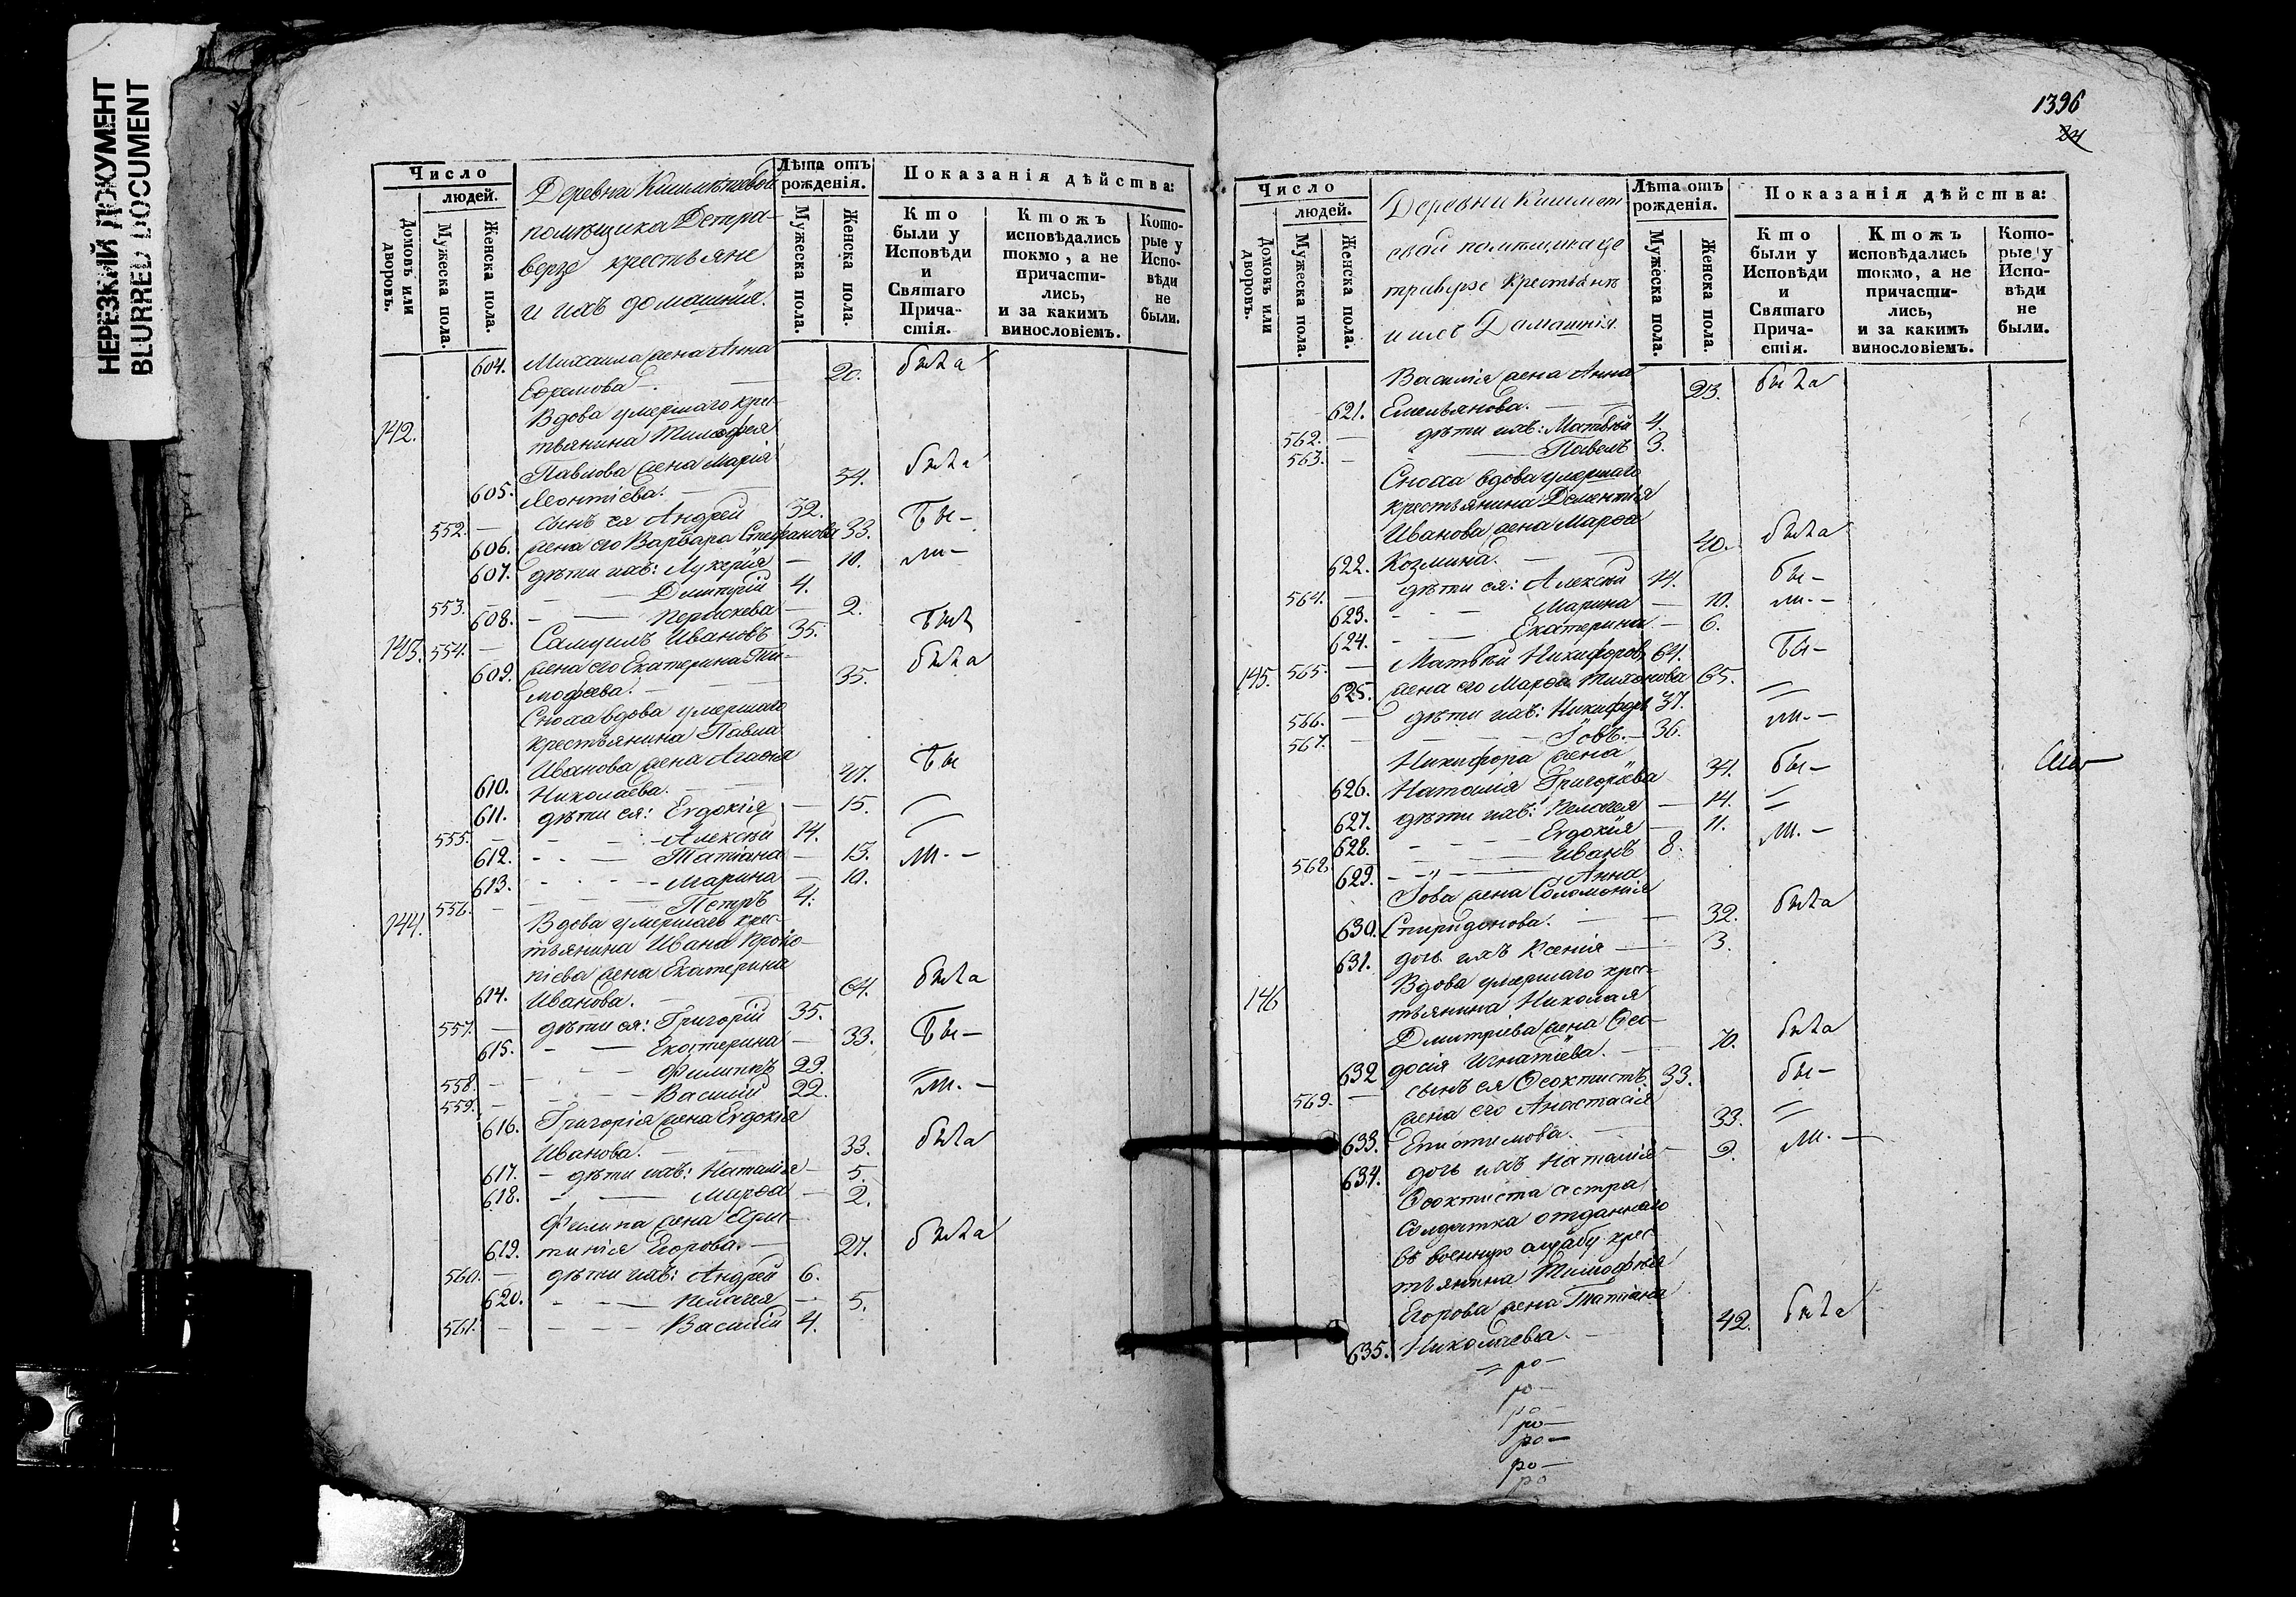 НЕРЕЗКИЙ ДОКУМЕНТ
BLURRED DOCUMENT
Число
людей.
Домовъ или дворовъ.
Мужеска пола.
Женска пола.
Деревня
помѣщика Детра-
верзе крестьяне
и ихъ домашнія.
Лѣта отъ рожденія.
Мужеска пола.
Женска пола.
Показанія дѣйства:
Кто были у Исповѣди и Святаго Прича-стія.
Ктожъ исповѣдались токмо, а не причасти-лись, и за какимъ винословіемъ.
Кото-рые у Испо-вѣди не были.
604. Михаила жена Анна
Ефремова 20. была
142. Вдова умершаго крес-
тьянина Тимофея
Павлова жена Марія
605. Леонтіева. 54. была
552. сынъ ея Андрей 32.
606. жена его Варвара Стефанова 33. бы-
607. дѣти ихъ: Лукерія 10. ли-
553. Дмитрій 4.
608. Параскева 2.
143. 554. Самуилъ Ивановъ 35. былъ
609. жена его Екатерина Ти-
мофеева. 35. была
Сноха вдова умершаго
крестьянина Павла
Иванова жена Агафія
610. Николаева. 47. бы
611. дѣти ея: Евдокія 15.
555. Алексѣй 14.
612. Татіана 13. ли.-
613. Марина 10.
556. Петръ 4.
144. Вдова умершаго крес-
тьянина Ивана Проко-
піева жена Екатерина
614. Иванова. 64. была
557. дѣти ея: Григорій 35.
615. Екатерина 33. бы-
558. Филиппъ 29.
559. Василій 22. ли.-
616. Григорія жена Евдокія
Иванова. 33. была
617. дѣти ихъ: Наталія 5.
618. Марфа 2.
Филипа жена
619. Егорова. 27. была
560. дѣти ихъ: Андрей 6.
620. Пелагея 5.
561. Василій 4.
1396
24
Число
людей.
Домовъ или дворовъ.
Мужеска пола.
Женска пола.
Деревни Кишмет
евой помѣщика де
траверзе Крестьянъ
и ихъ Домашнія.
Лѣта отъ рожденія.
Мужеска пола.
Женска пола.
Показанія дѣйства:
Кто были у Исповѣди и Святаго Прича-стія.
Ктожъ исповѣдались токмо, а не причасти-лись, и за какимъ винословіемъ.
Кото-рые у Испо-вѣди не были.
Василія жена Анна
621. Емельянова. 23. была
562. дѣти ихъ: Матвѣй 4.
563. Павелъ 3.
Сноха вдова умершаго
крестьянина Дементія
Иванова жена Марфа
622. Козмина. 40. была
564. дѣти ея: Алексѣй 14. бы-
623. Марина 10. ли.-
624. Екатерина 6.
145. 565. Матвѣй Никифоровъ 64. бы-
625. жена его Марфа Тихонова 65.
566. дѣти ихъ: Никифоръ 37.
567. Іовъ. 36. ли.-
Никифора жена
626. Наталія Григоріева 34. бы-
627. дѣти ихъ: Пелагея 14.
628. Евдокія 11. ли.-
568. Иванъ 8.
629. Анна
Іова жена Соломонія
630. Спиридонова. 32. была
631. дочь ихъ Ксенія 3.
146 Вдова умершаго крес-
тьянина Николая
Дмитріева жена Фео-
632 досія Игнатіева. 70. была
569. сынъ ея Феоктистъ 33. бы-
жена его Анастасія
633. 33.
634. дочь ихъ Наталія 9. ли.-
Феоктиста сестра
Солдатка отданнаго
въ военную службу крес-
тьянина Тимофея
Егорова жена Татіана
635. Николаева. 42. была